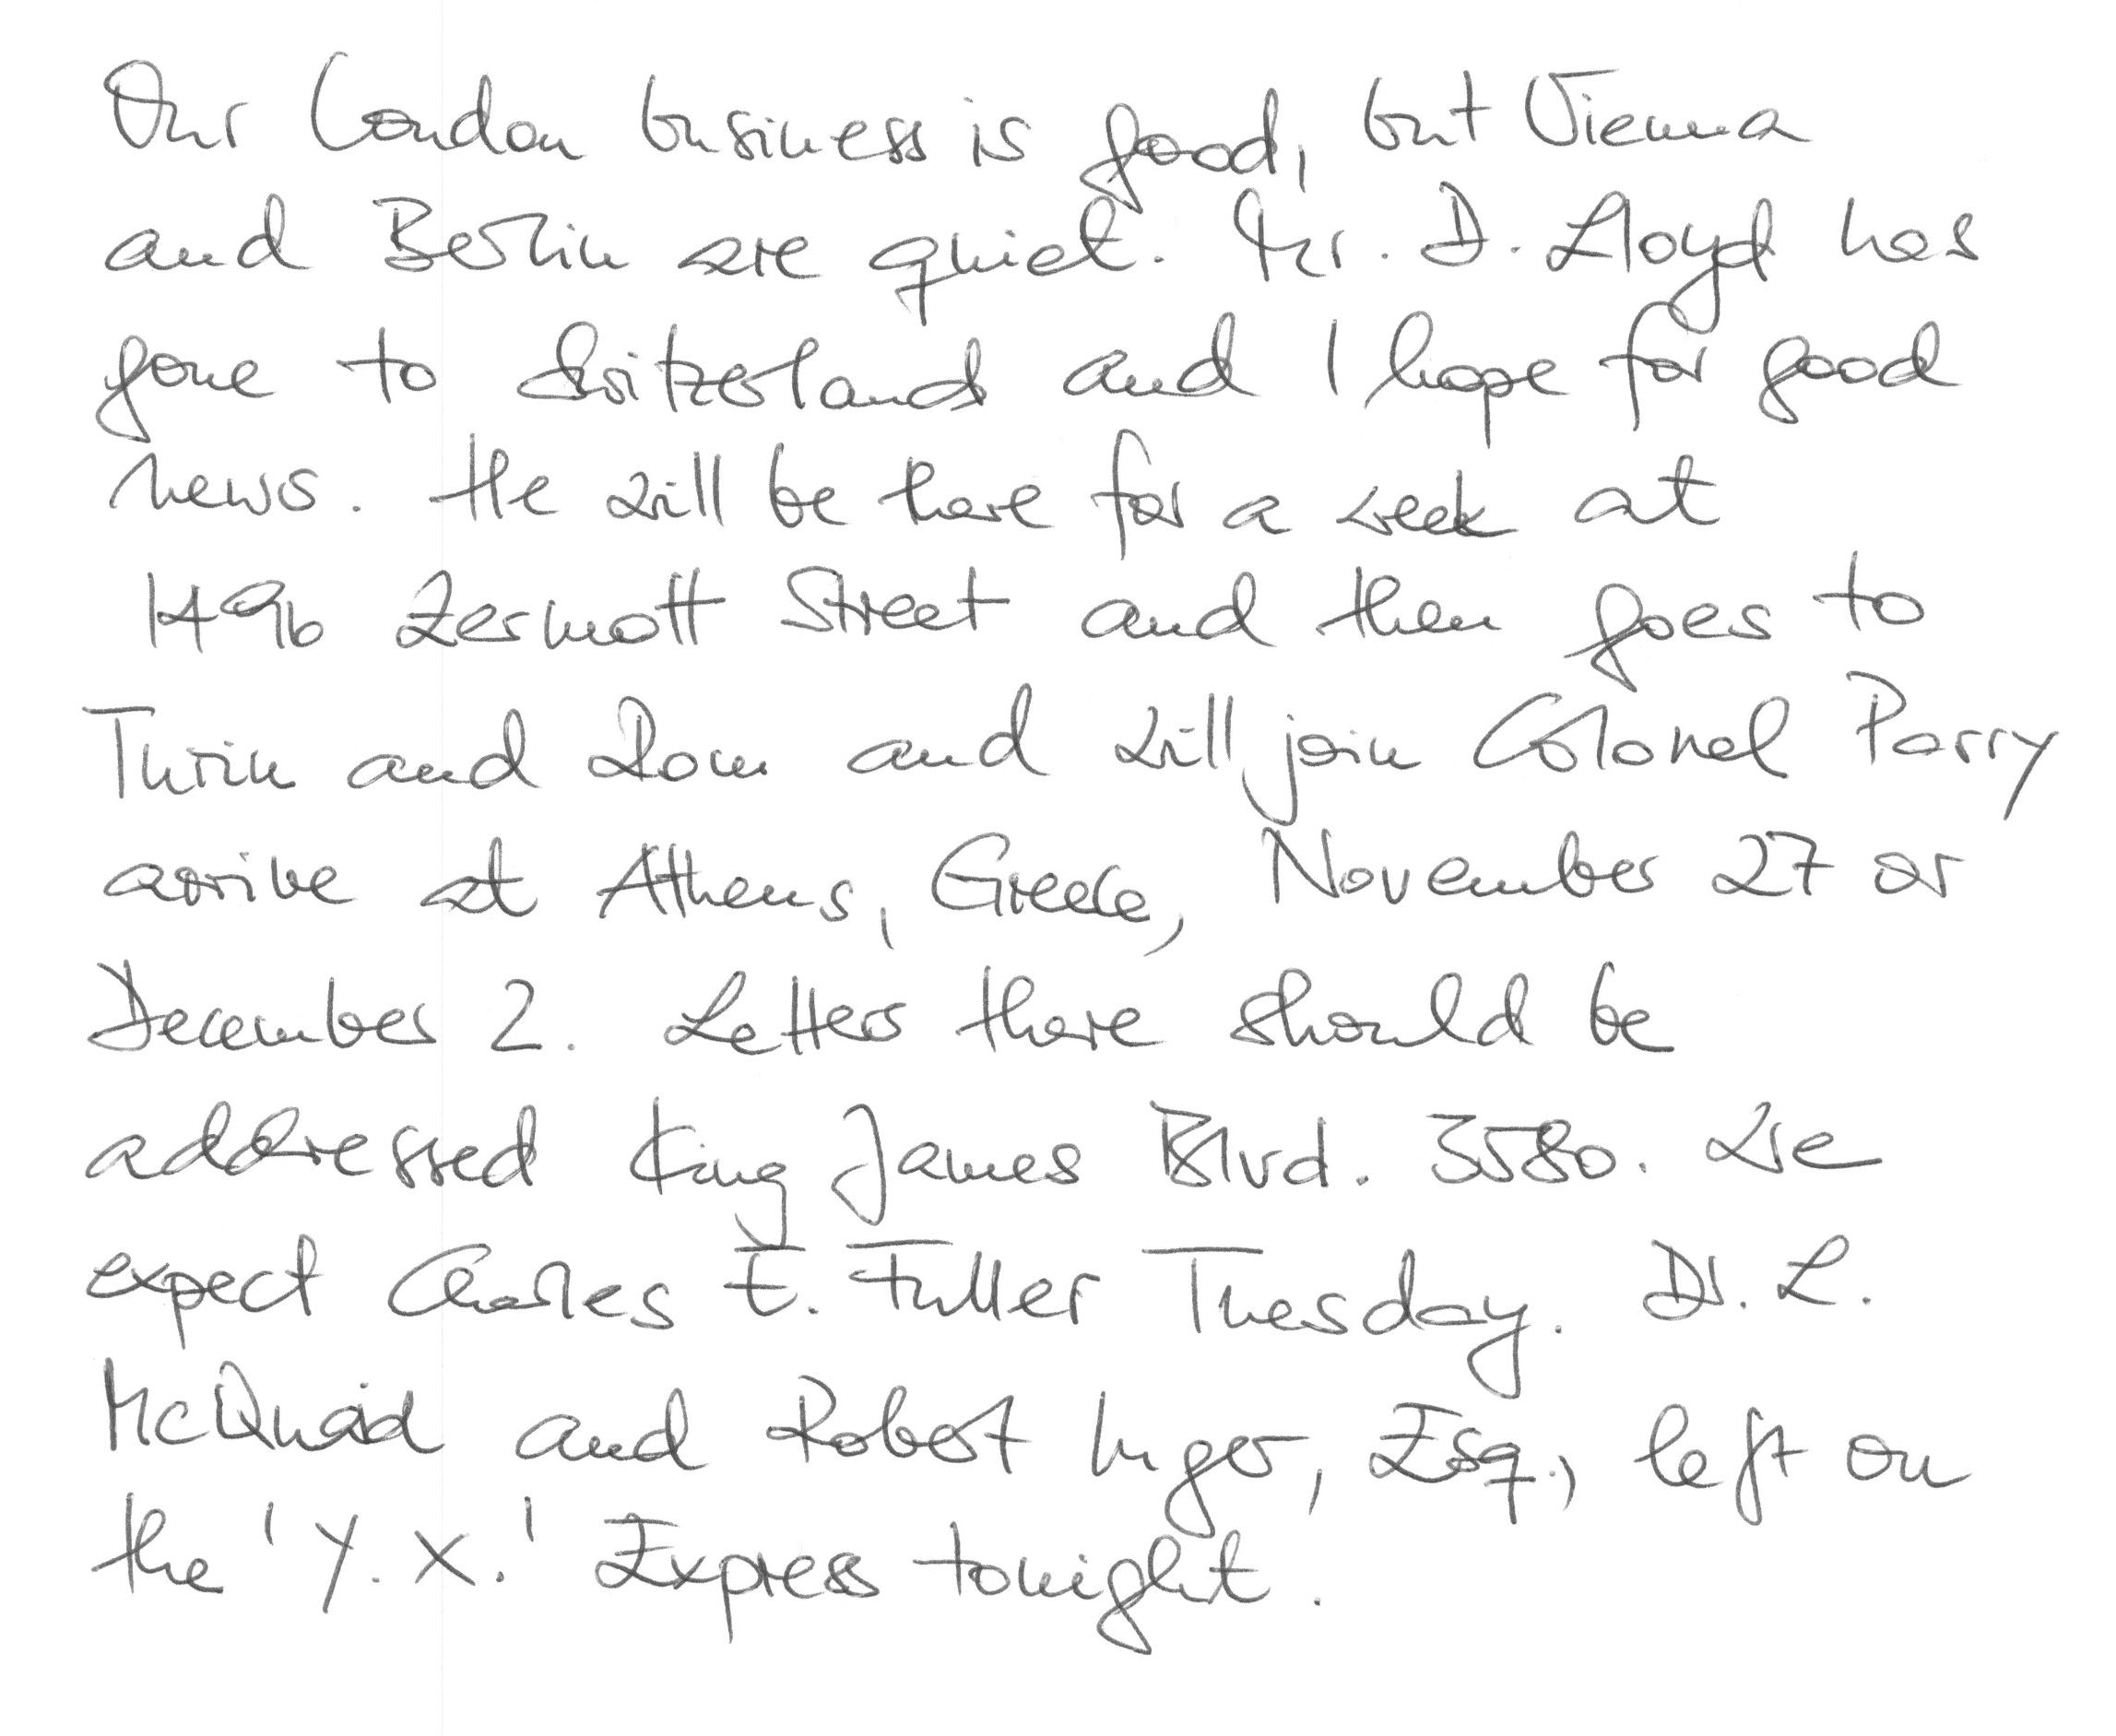 Our London business is good, but Vienna
and Berlin are quiet. Mr. D. Lloyd has
gone to Switzerland and I hope for good
news. He will be there for a week at
1496 Zermott Street and then goes to
Turin and Rom and will join Colonel Parry
arrive at Athens, Greece, November 27 or
December 2. Letters there should be
addressed King James Blvd. 3580. We
expect Charles E. Fuller Tuesday. Dr. L.
McQuaid and Robert Unger, Esq., left on
the 'Y.X.' Express tonight.